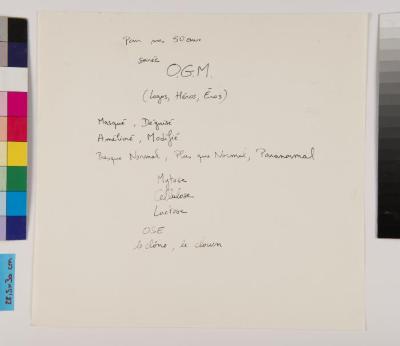 Pour mes 50 ans
soirée
O.G.M.
(Logos, Héros, Éros)
Masqué, Déguisé
Amélioré, Modifié
Presque Normal, Plus que Normal, Paranormal
Mytose
Cellulose
Lactose
OSE
le clône, le clown
28,5 x 30 cm